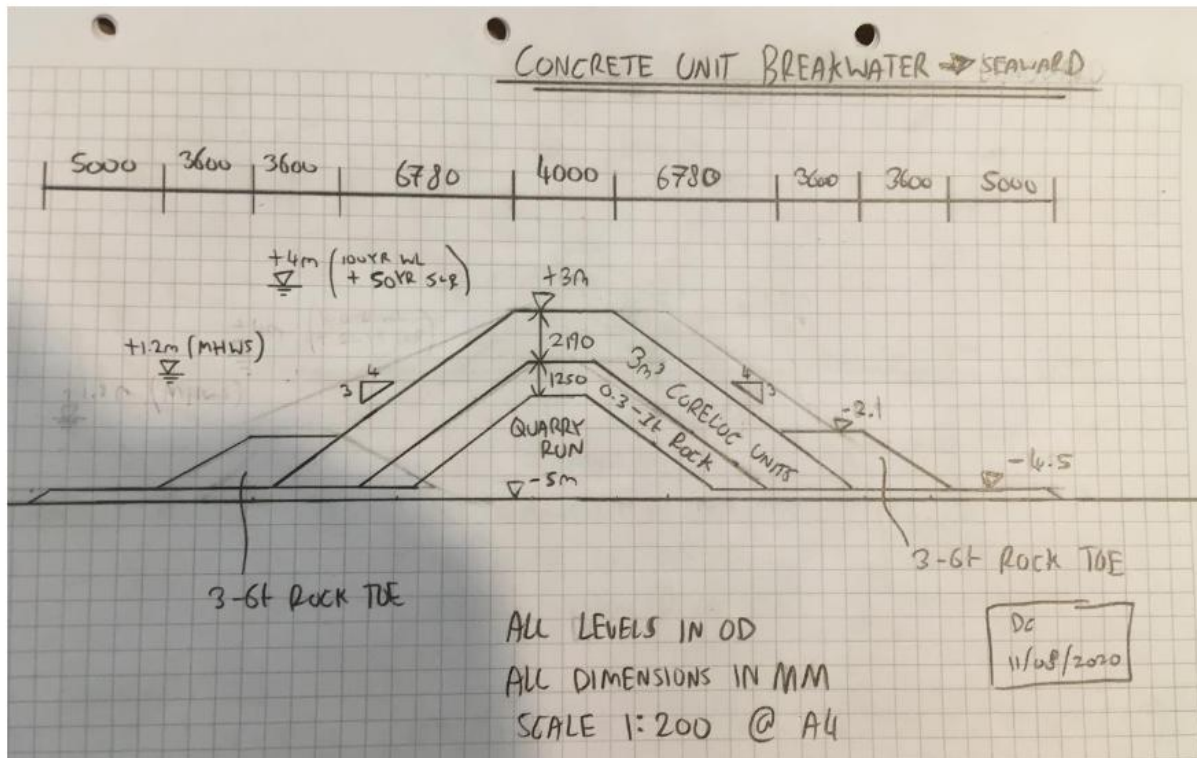 CONCRETE UNIT BREAKWATER → SEAWARD
5000 3600 3600 6780 4000 6780 3600 3600 5000
+4m (100YR WL
+ 50YR SLR)
+3m
+1.2m (MHWS)
2190
4
3
4
3
1250
3m³ CORELOC UNITS
0.3-1t ROCK
-2.1
QUARRY
RUN
-4.5
-5m
3-6t ROCK TOE
3-6t ROCK TOE
ALL LEVELS IN OD
ALL DIMENSIONS IN MM
SCALE 1:200 @ A4
DC
11/08/2020